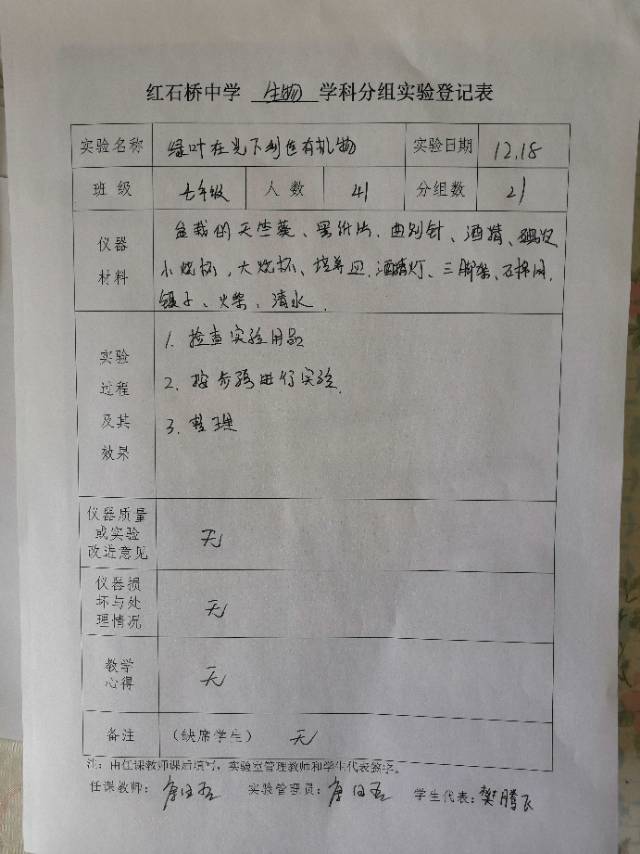 红石桥中学 生物 学科分组实验登记表
实验名称 绿叶在光下制造有机物 实验日期 12.18
班级 七年级 人数 41 分组数 21
仪器材料 盆栽的天竺葵、黑纸片、曲别针、酒精、碘液
小烧杯、大烧杯、培养皿、酒精灯、三脚架、石棉网、
镊子、火柴、清水.
实验过程及其效果
1. 检查实验用品
2. 按步骤进行实验.
3. 整理
仪器质量或实验改进意见 无
仪器损坏与处理情况 无
教学心得 无
备注 (缺席学生) 无
注:由任课教师课后填写,实验室管理教师和学生代表签字。
任课教师: 实验管理员: 学生代表:樊腾飞